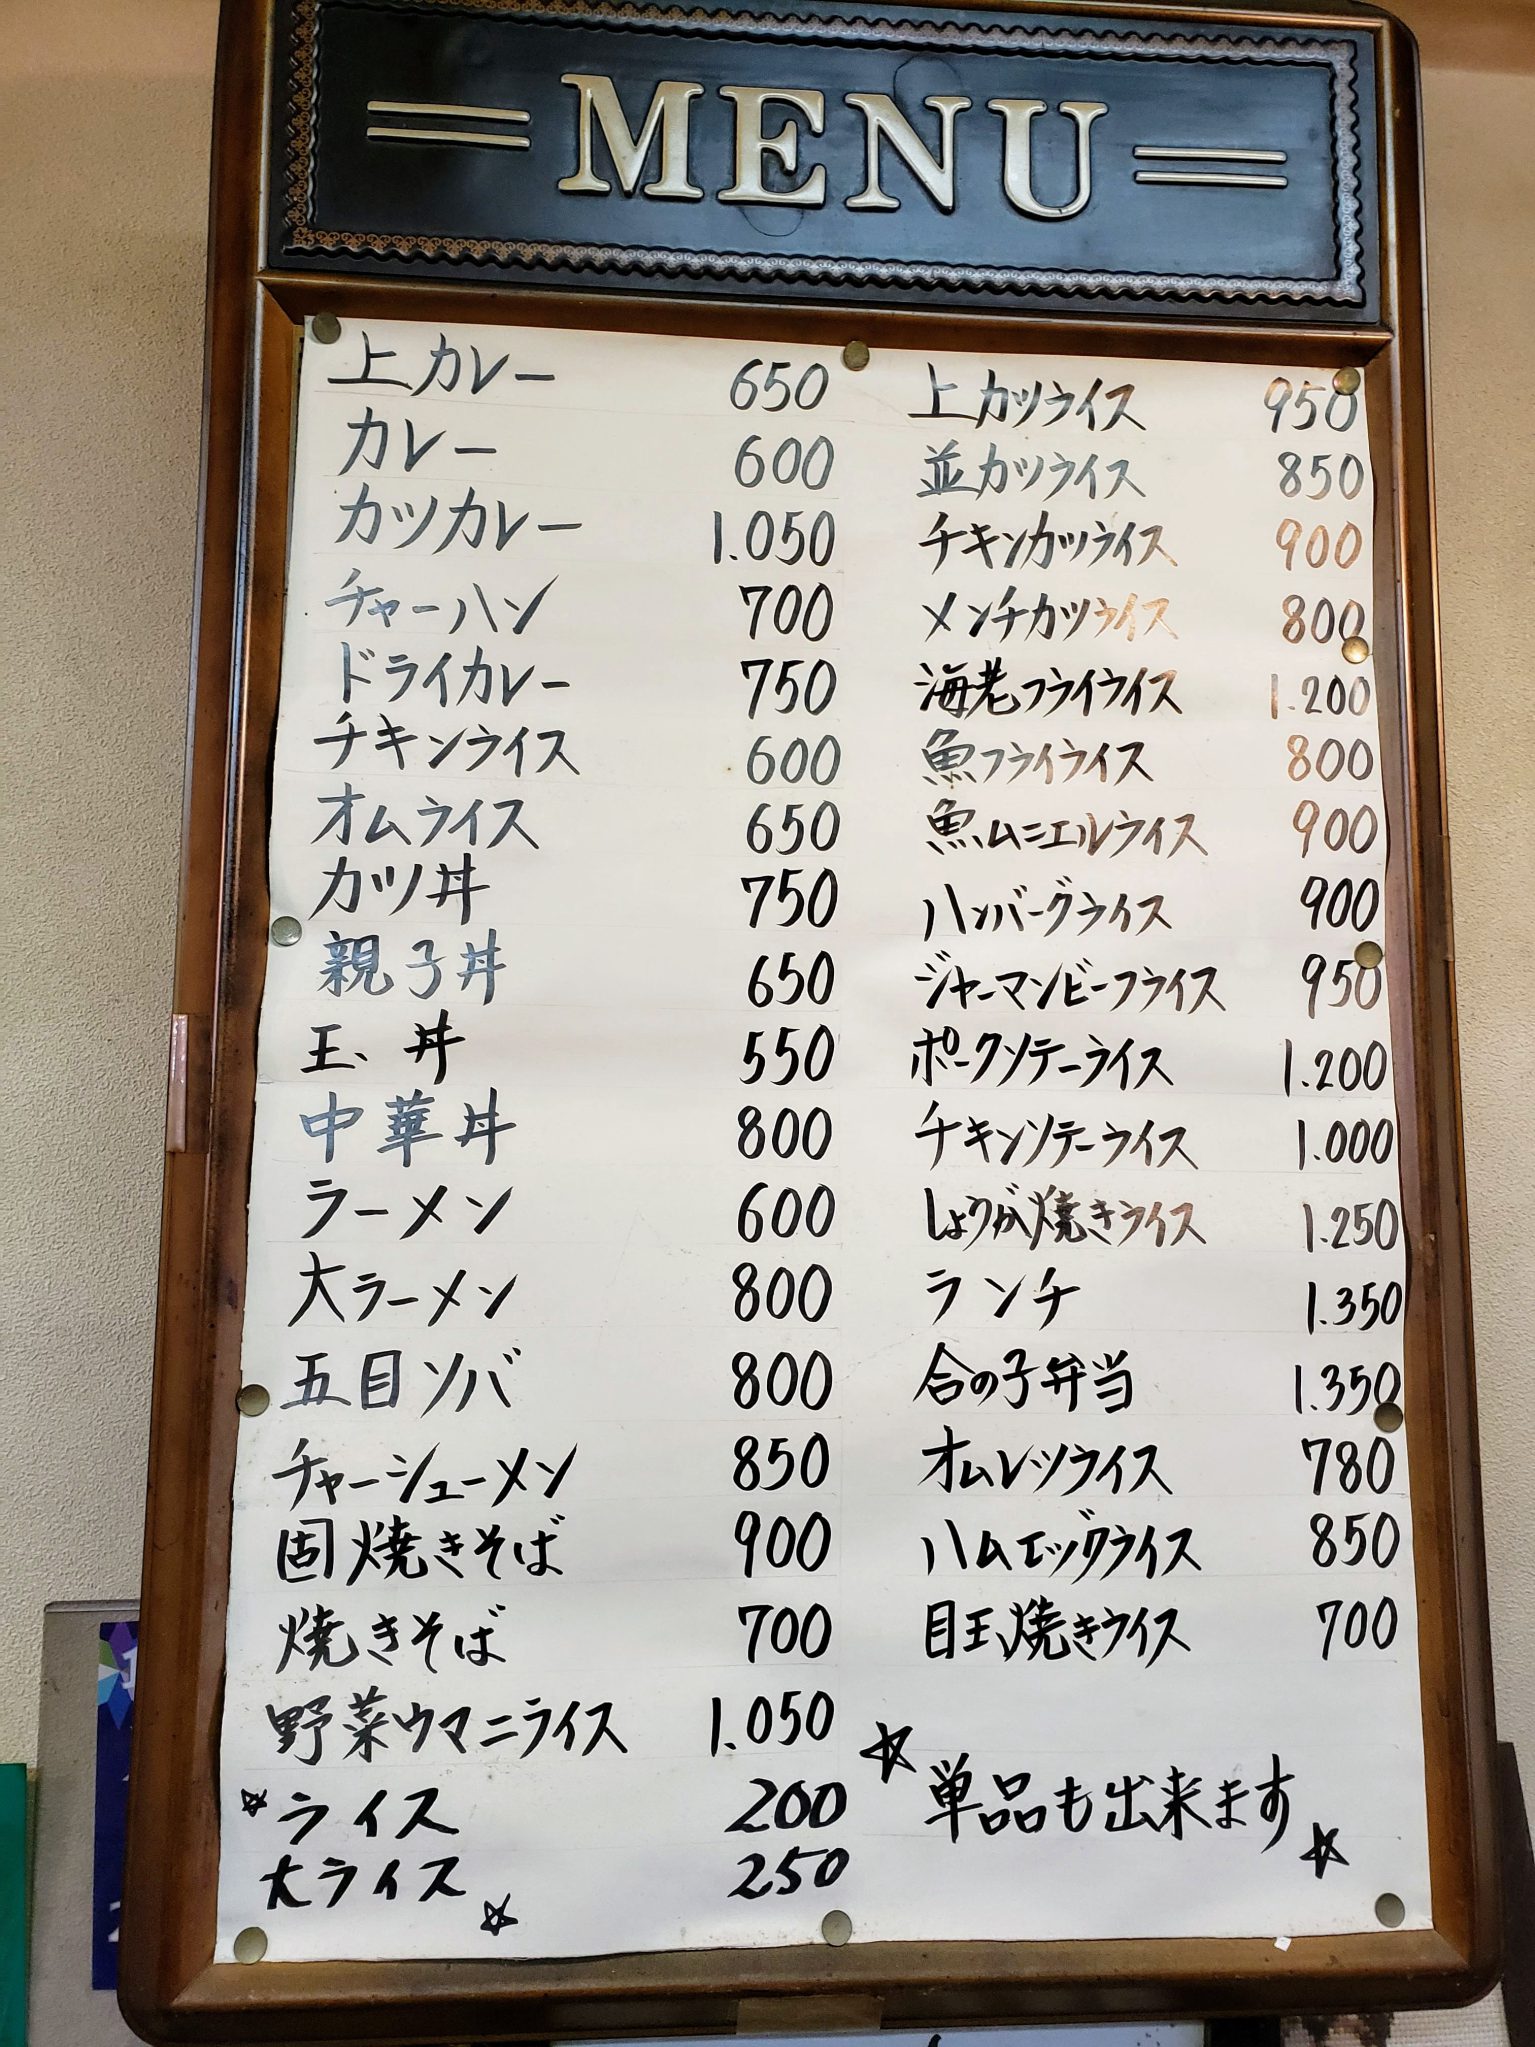 MENU
上カレー 650
カレー 600
カツカレー 1.050
チャーハン 700
ドライカレー 750
チキンライス 600
オムライス 650
カツ丼 750
親子丼 650
玉丼 550
中華丼 800
ラーメン 600
大ラーメン 800
五目ソバ 800
チャーシューメン 850
固焼きそば 900
焼きそば 700
野菜ウマニライス 1.050
☆ライス 200
大ライス☆ 250
上カツライス 950
並カツライス 850
チキンカツライス 900
メンチカツライス 800
海老フライライス 1.200
魚フライライス 800
魚ムニエルライス 900
ハンバーグライス 900
ジャーマンビーフライス 950
ポークソテーライス 1.200
チキンソテーライス 1.000
しょうが焼きライス 1.250
ランチ 1.350
合の子弁当 1.350
オムレツライス 780
ハムエッグライス 850
目玉焼きライス 700
☆単品も出来ます☆